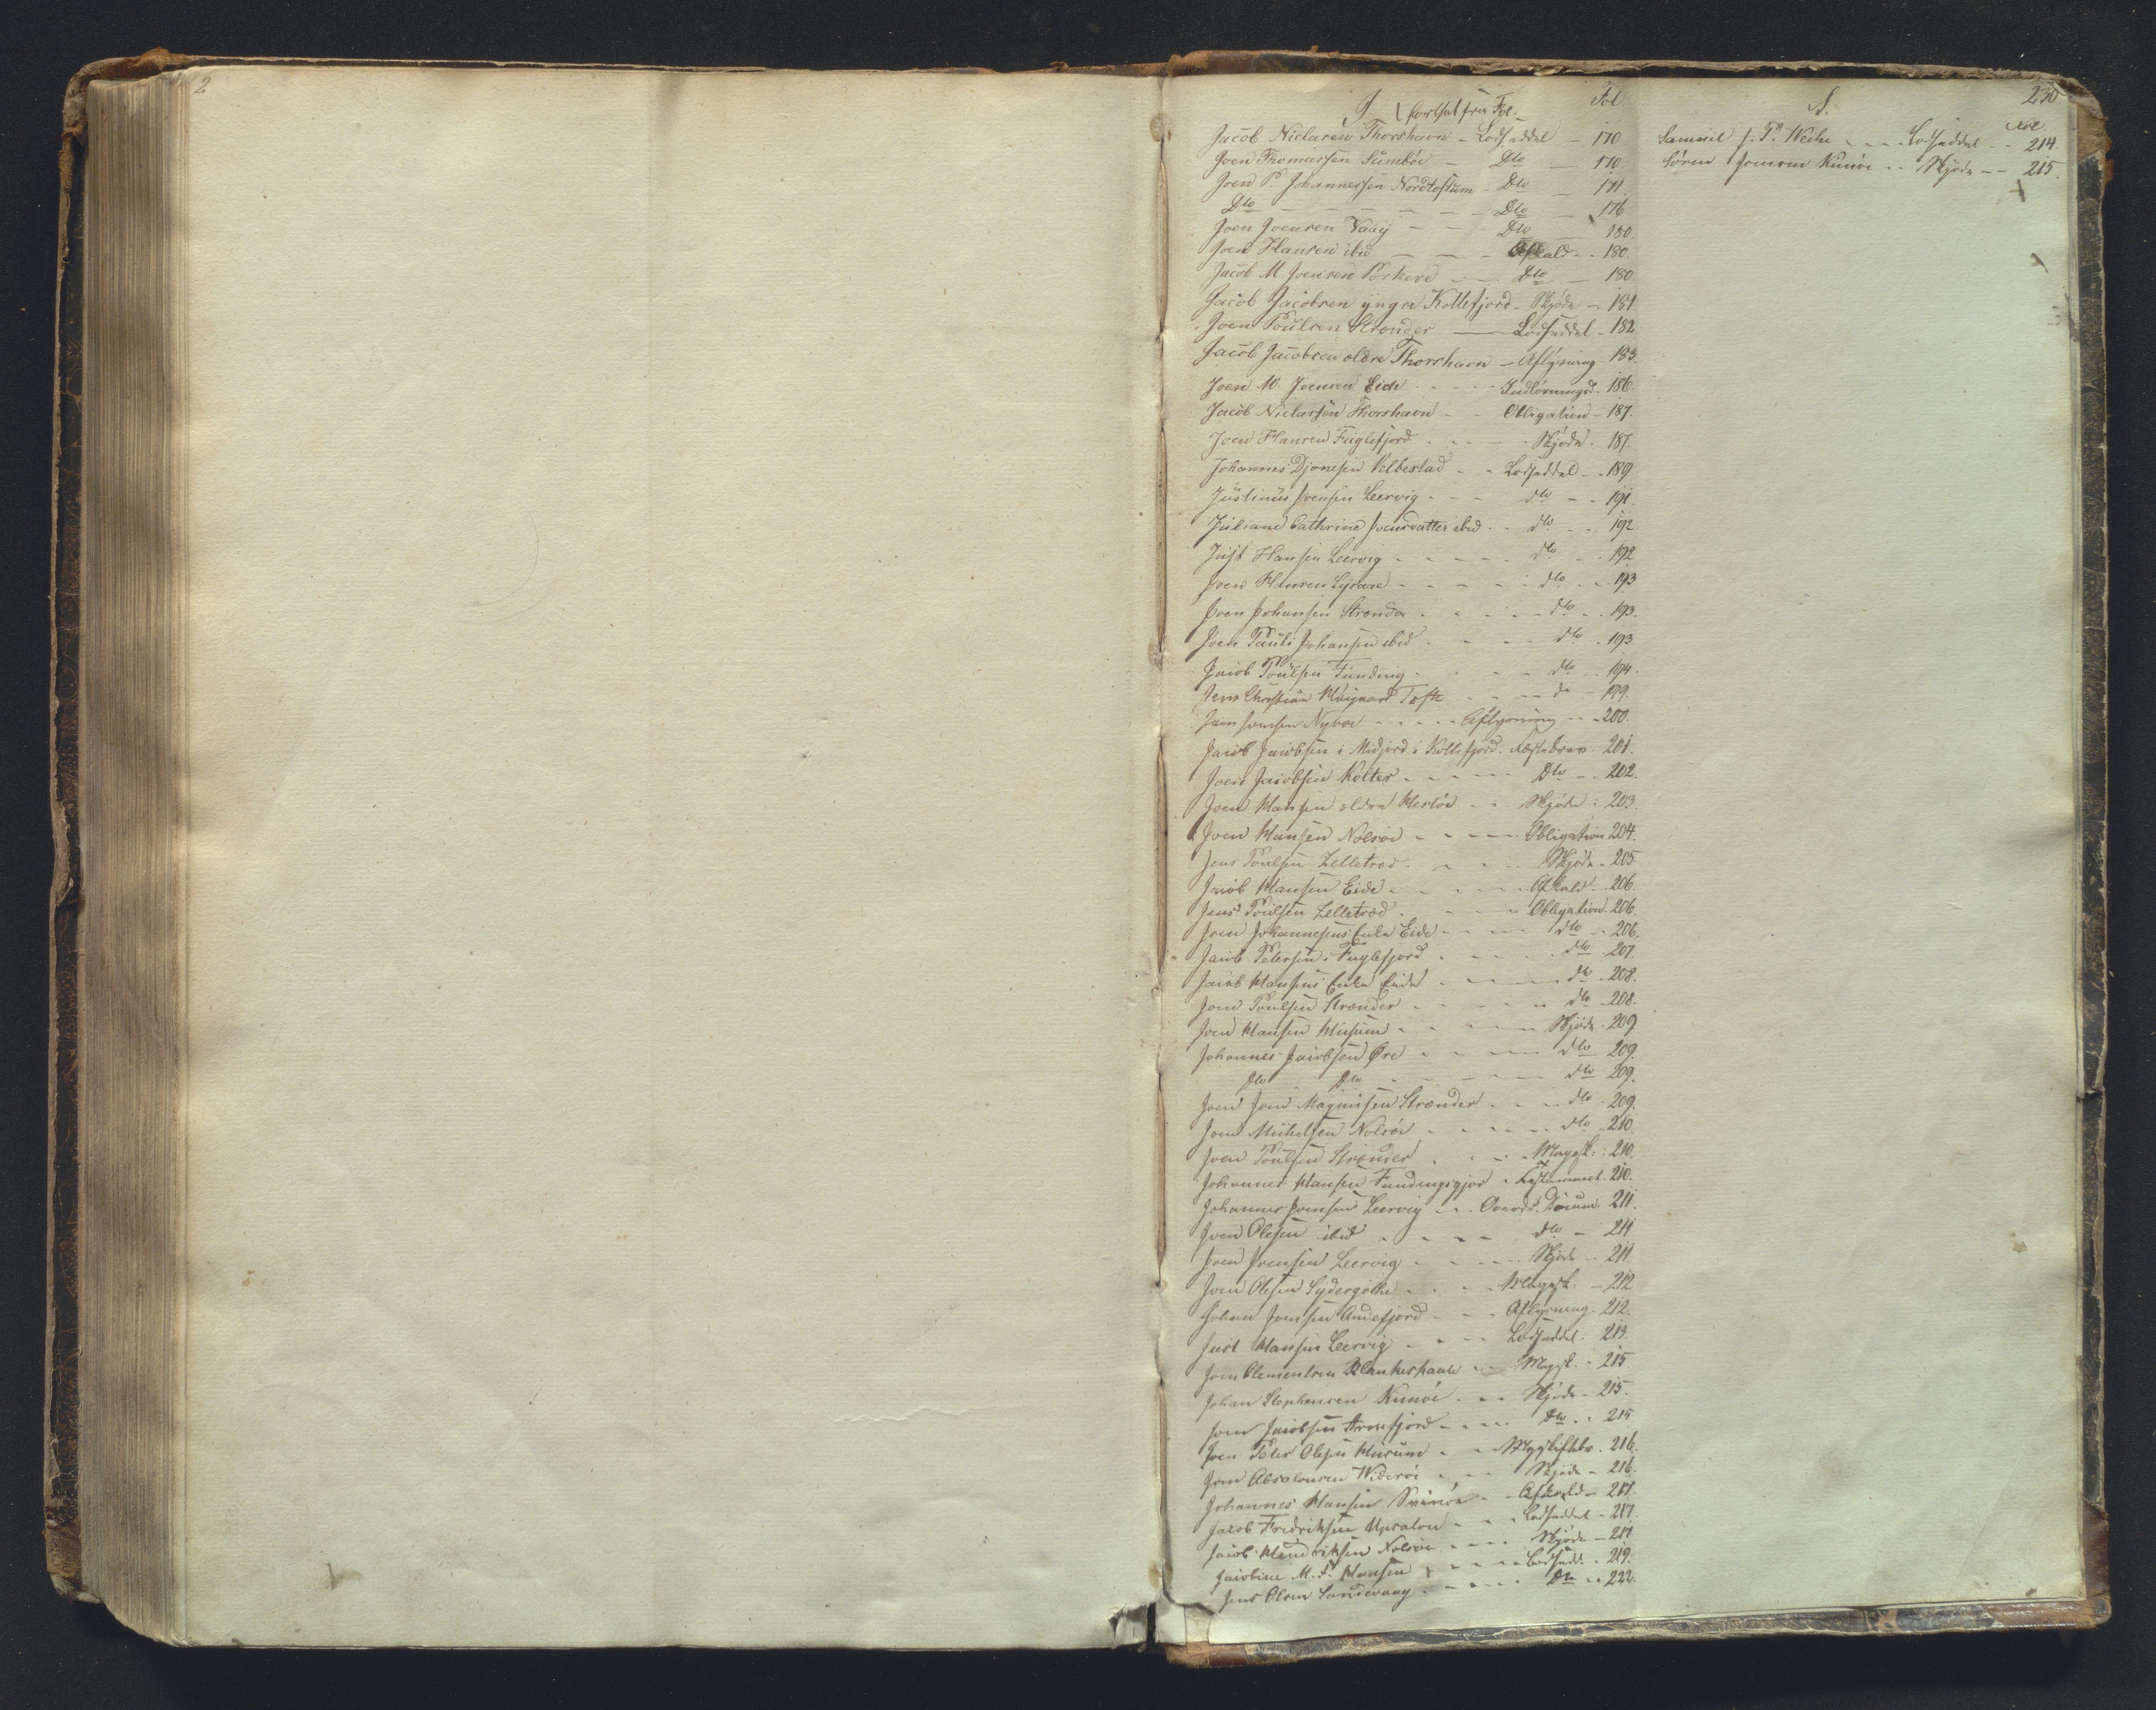 2
230
J. (fortsat fra Fol.
Fol
Jacob Niclasen Thorshavn - Lodseddel - 170
Joen Thomassen Sumböe - Dto - 170
Joen P. Johannessen Nordtoftum - Dto - 171
Dto - Dto - 176
Joen Joensen Vaag - Dto 180.
Joen Hansen ibid - Afkald - 180.
Jacob M. Joensen Porkere - Dto - 180
Jacob Jacobsen yngre Kollefjord - Skjöde - 181
Joen Poulsen Strender - Lodseddel - 182
Jacob Jacobsen ældre Thorshavn - Aflysning 183.
Joen M. Joensen Eide - 186.
Jacob Niclassen Thorshavn - Obligation - 187.
Joen Hansen Fuglefjord - Skjöde - 187.
Johannes Djonesen Velbestad - Lodseddel - 189
Justinus Joensen Leervig - dto - 191
Juliane Cathrine Joensdatter ibid - dto - 192
Just Hansen Leervig - dto - 192
Joen Hansen - dto - 193
Joen Johansen Strender - dto - 193.
Joen Pauli Johansen ibid - dto - 193
Jacob Poulsen Funding - dto - 194.
Jens Christian Toft - do - 199.
Joen Joensen - Aflysning - 200.
Jacob Jacobsen i Midgerd i Kollefjord - 201.
Joen Jacobsen Kolter - Dto - 202.
Joen Hansen ældre Hestöe - Skjöde - 203.
Joen Hansen Nolsöe - Obligation 204.
Jens Poulsen Zelletræd - Skjöde - 205
Jacob Hansen Eide - Afkald - 206.
Jens Poulsen Zelletræd - Obligation. 206.
Joen Johannesens Enke Eide - dto - 206.
Jacob Petersen i Fuglefjord - dto 207.
Jacob Hansens Enke Eide - do - 208.
Joen Poulsen Strender - dto - 208.
Joen Hansen Husum - Skjöde - 209
Johannes Jacobsen Öre - dto 209.
Dto Dto - dto 209.
Joen Joen Magnussen Strender - dto - 209.
Joen Michelsen Nolsöe - dto - 210.
Joen Poulsen Strender - Magesk. 210.
Johannes Hansen Fundingsgjov - Testament. 210.
Johannes Joensen Leervig - Docum. 211.
Joen Olesen ibid - dto - 211
Joen Joensen Leervig - Skjöde - 211.
Joen Olesen Sydergöthe - Magesk. - 212
Johan Joensen Andefjord - Aflysning - 212.
Just Hansen Leervig - Lodseddel. 213.
Joen Clementsen Blankeskaale - Magesk. 215
Johan Stephansen Kunöe - Skjöde - 215.
Joen Jacobsen Arnefjord - Dto - 215
Joen Peter Olesen Husum - 216.
Joen Absalonsen Wideröe - Skjöde - 216.
Johannes Hansen Svinöe - Afkald - 217.
Jacob Fredriksen Upsalon - Lodseddel - 217.
Jacob Hendriksen Nolsöe - Skjöde - 217
Jacobine M. S. Hansen - Lodsedd. - 219.
Jens Olsen Sandevaag - Dto - 222.
S.
Fol
Samuel J. T. Weihe - Lodseddel - 214.
Sören Joensen Kunöe - Skjöde - 215.